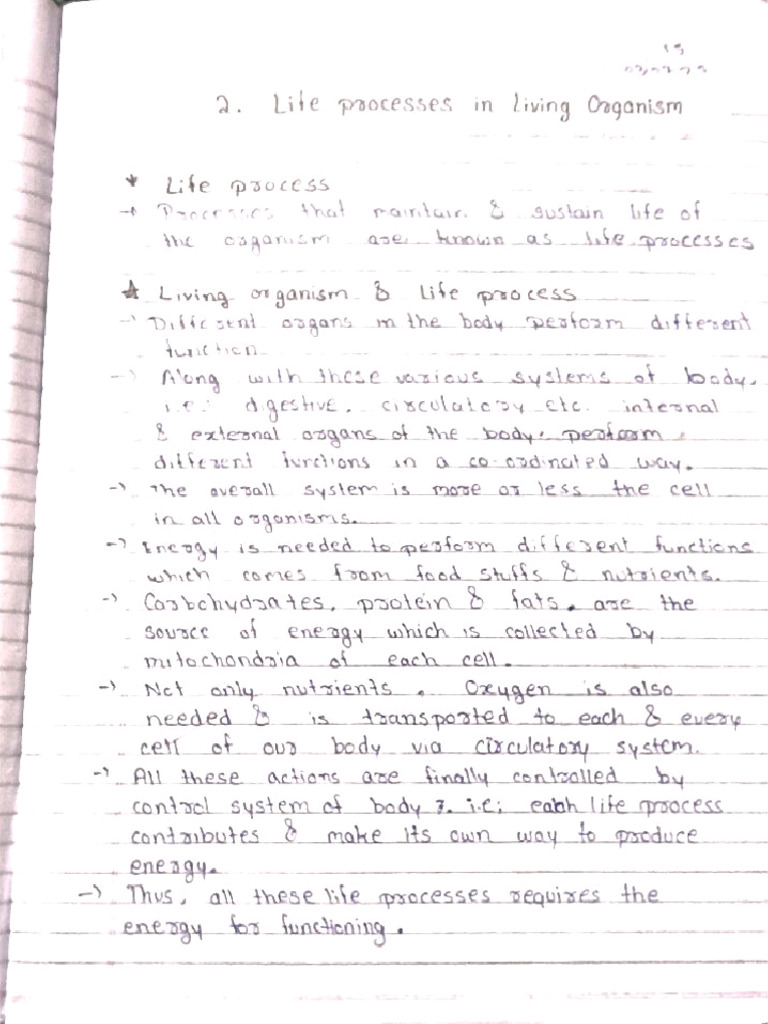 15
2. Life processes in Living Organism
* Life process
→ Processes that maintain & sustain life of
the organism are known as life processes
★ Living organism & Life process
→ Different organs in the body perform different
function
→ Along with these various systems of body.
i.e. digestive, circulatory etc. internal
& external organs of the body, perform,
different functions in a co-ordinated way.
→ The overall system is more or less the cell
in all organisms.
→ Energy is needed to perform different functions
which comes from food stuffs & nutrients.
→ Carbohydrates, protein & fats. are the
source of energy which is collected by
mitochondria of each cell.
→ Not only nutrients. Oxygen is also
needed & is transported to each & every
cell of our body via circulatory system.
→ All these actions are finally controlled by
control system of body i.e; each life process
contributes & make its own way to produce
energy.
→ Thus, all these life processes requires the
energy for functioning.